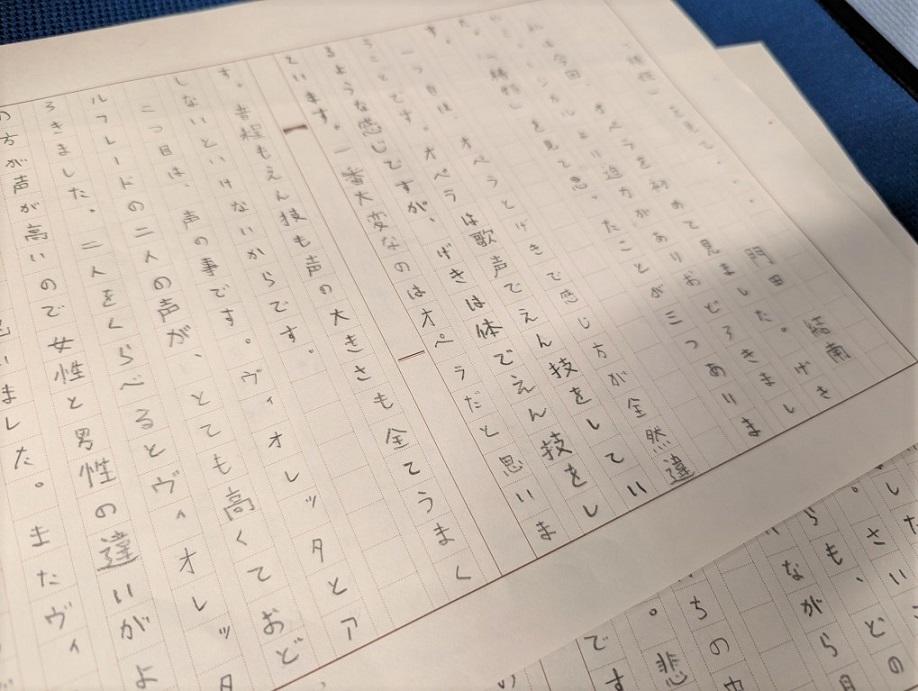 「椿姫」を見て。
門田 結南
私は今回、オペラを初めて見ました。げき
ミュージカルより迫力がありおどろきまし
た。「椿姫」を見て思ったことが三つありま
す。
一つ目は、オペラとげきで感じ方が全然違
うことです。オペラは歌声でえん技をしてい
るような感じですが、げきは体でえん技をし
ています。一番大変なのはオペラだと思いま
す。音程もえん技も声の大きさも全てうまく
しないといけないからです。
二つ目は、声の事です。ヴィオレッタとア
ルフレードの二人の声が、とても高くておど
ろきました。二人をくらべるとヴィオレッタ
の方が声が高いので女性と男性の違いがよ
いました。またヴィ
の
さい、ど
し
。も、
らながら
ちの
。悲
です